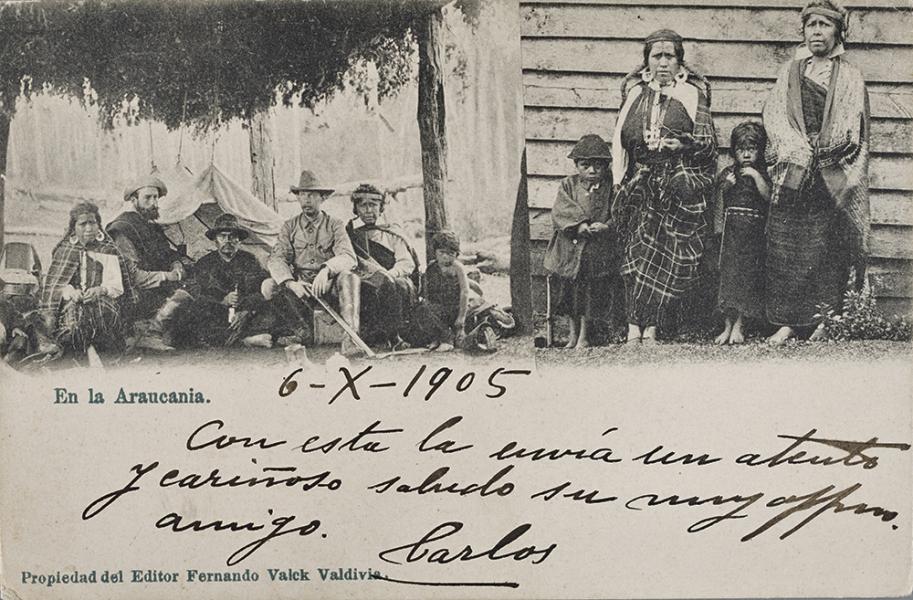 En la Araucania.
6-X-1905
Con esta la envía un atento
y cariñoso saludo su muy affmo.
amigo.
Carlos
Propiedad del Editor Fernando Valck Valdivia.